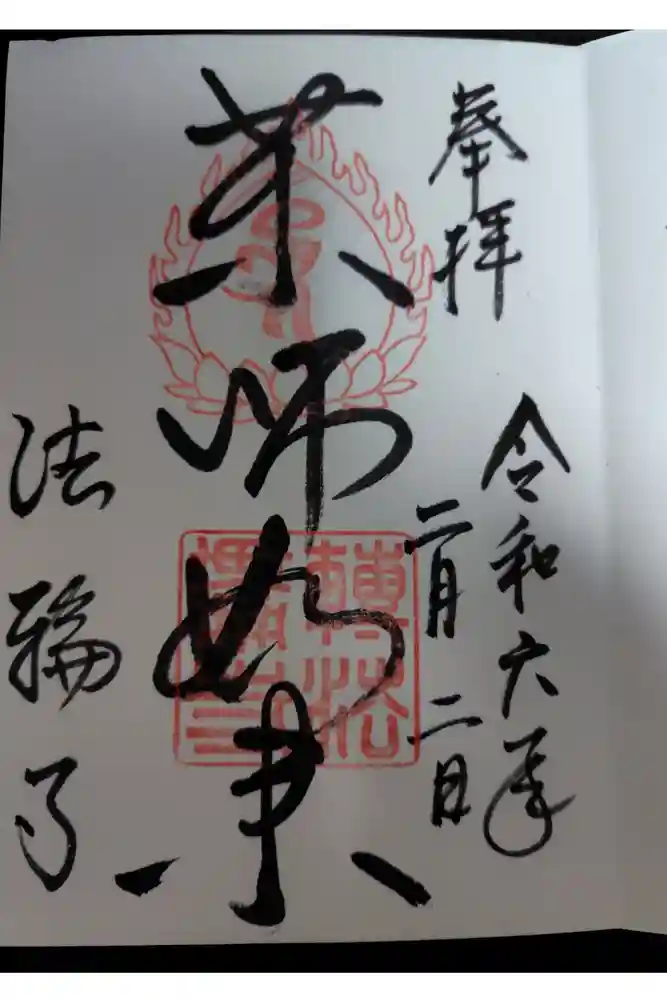 奉拝
令和六年
二月二日
薬師如来
法輪寺
轉法